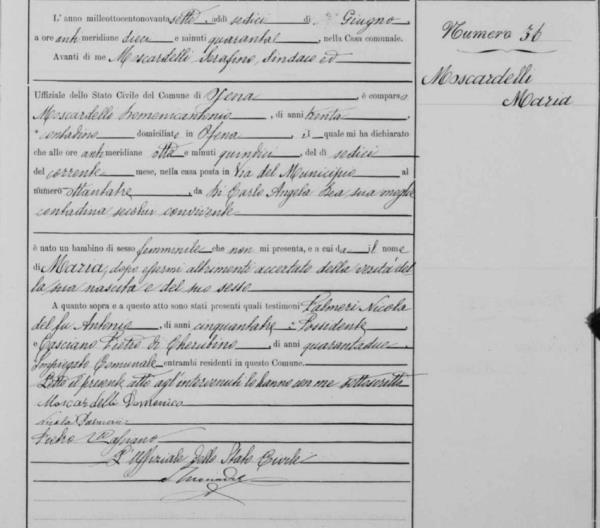 L'anno milleottocentonovanta sette addì sedici di Giugno
a ore anti meridiane dieci e minuti quaranta, nella Casa comunale.
Avanti di me Moscardelli Serafino, Sindaco ed
Uffiziale dello Stato Civile del Comune di Ofena, è comparso
Moscardelli Domenicantonio, di anni trenta
contadino domiciliato in Ofena, il quale mi ha dichiarato
che alle ore anti meridiane otto e minuti quindici, del dì sedici
del corrente mese, nella casa posta in Via del Municipio al
numero ottantatre, da Di Carlo Angela sua moglie
contadina secolui convivente
è nato un bambino di sesso femminile che non mi presenta, e a cui dà il nome
di Maria, dopo essermi altrimenti accertato della verità del
la sua nascita e del suo sesso
A quanto sopra e a questo atto sono stati presenti quali testimoni Palmeri Nicola
del fu Antonio, di anni cinquantatre Possidente
e Casciano Pietro di Cherubino, di anni quarantadue
Impiegato Comunale entrambi residenti in questo Comune.
Letto il presente atto agl'intervenuti lo hanno con me sottoscritto
Moscardelli Domenico
Nicola Palmeri
Pietro Casciano
L'Uffiziale dello Stato Civile
Numero 36
Moscardelli
Maria